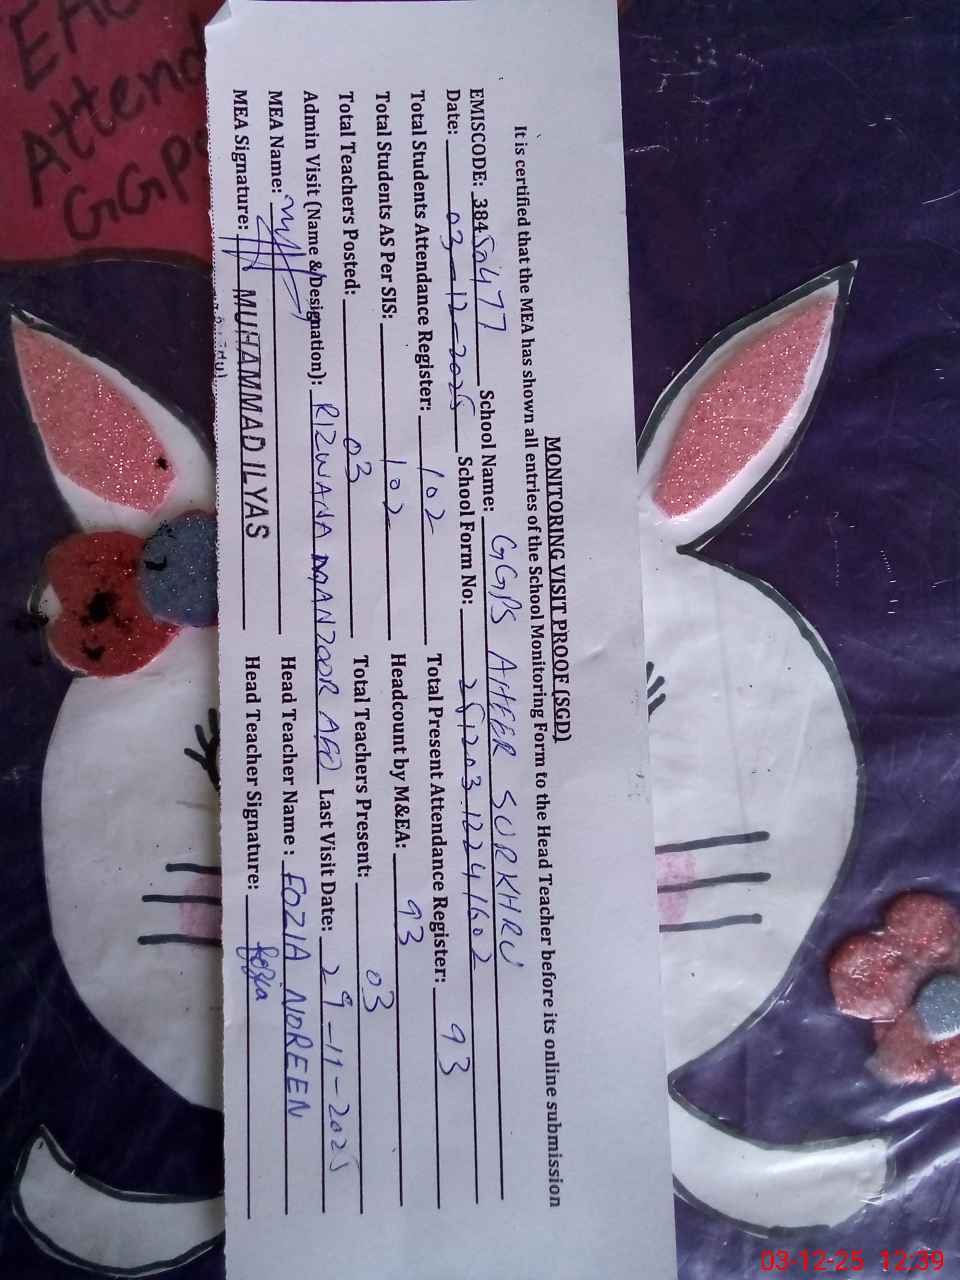 MONITORING VISIT PROOF (SGD)
It is certified that the MEA has shown all entries of the School Monitoring Form to the Head Teacher before its online submission
EMISCODE: 38450477 School Name: GGPS AHEER SURKHRU
Date: 03-12-2025 School Form No: 25120312241602
Total Students Attendance Register: 102 Total Present Attendance Register: 93
Total Students AS Per SIS: 102 Headcount by M&EA: 93
Total Teachers Posted: 03 Total Teachers Present: 03
Admin Visit (Name & Designation): RIZWANA MANZOOR AEO Last Visit Date: 29-11-2025
MEA Name: Head Teacher Name: FOZIA NOREEN
MEA Signature: MUHAMMAD ILYAS Head Teacher Signature: fozia
Attend
GGPS
03-12-25 12:39